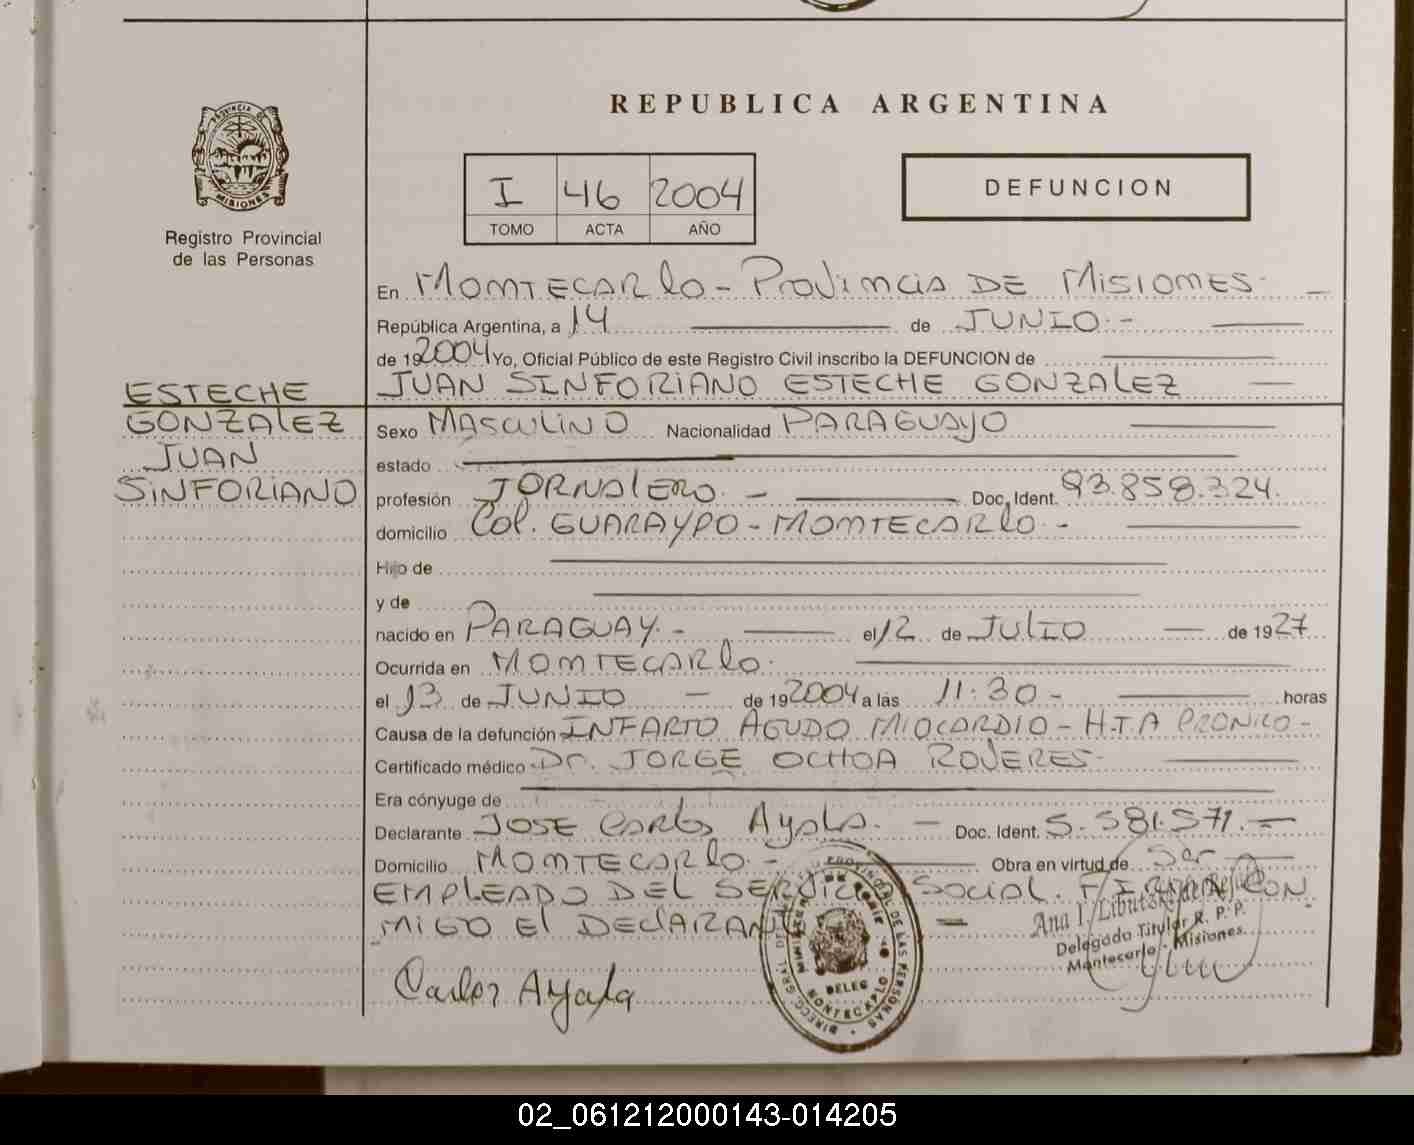 REPUBLICA ARGENTINA
PROVINCIA DE
MISIONES
Registro Provincial
de las Personas
I 46 2004
TOMO ACTA AÑO
DEFUNCION
En MONTECARLO - Provincia DE MISIONES -
República Argentina, a 14 de JUNIO -
de 192004 Yo, Oficial Público de este Registro Civil inscribo la DEFUNCION de
JUAN SINFORIANO ESTECHE GONZALEZ
ESTECHE
GONZALEZ
JUAN
SINFORIANO
Sexo MASCULINO Nacionalidad PARAGUAYO
estado
profesión JORNALERO. - Doc. Ident. 93.858.324.
domicilio Col. GUARAYPO - MONTECARLO -
Hijo de
y de
nacido en PARAGUAY. - el 12 de JULIO de 1927
Ocurrida en MONTECARLO.
el 13 de JUNIO - de 192004 a las 11:30 - horas
Causa de la defunción INFARTO AGUDO MIOCARDIO - H.T.A CRONICO -
Certificado médico Dr. JORGE OCHOA ROVERES -
Era cónyuge de
Declarante JOSE Carlos Ayala. - Doc. Ident. 5.581.571. -
Domicilio MONTECARLO. - Obra en virtud de Ser
EMPLEADO DEL SERVICIO SOCIAL. FIRMA CON
MIGO El DECLARANTE
Carlos Ayala
DIRECC. GRAL. DEL REG. PROVINCIAL DE LAS PERSONAS
DELEG
MONTECARLO
Ana I.
Delegada Titular R. P. P.
Montecarlo - Misiones
02_061212000143-014205